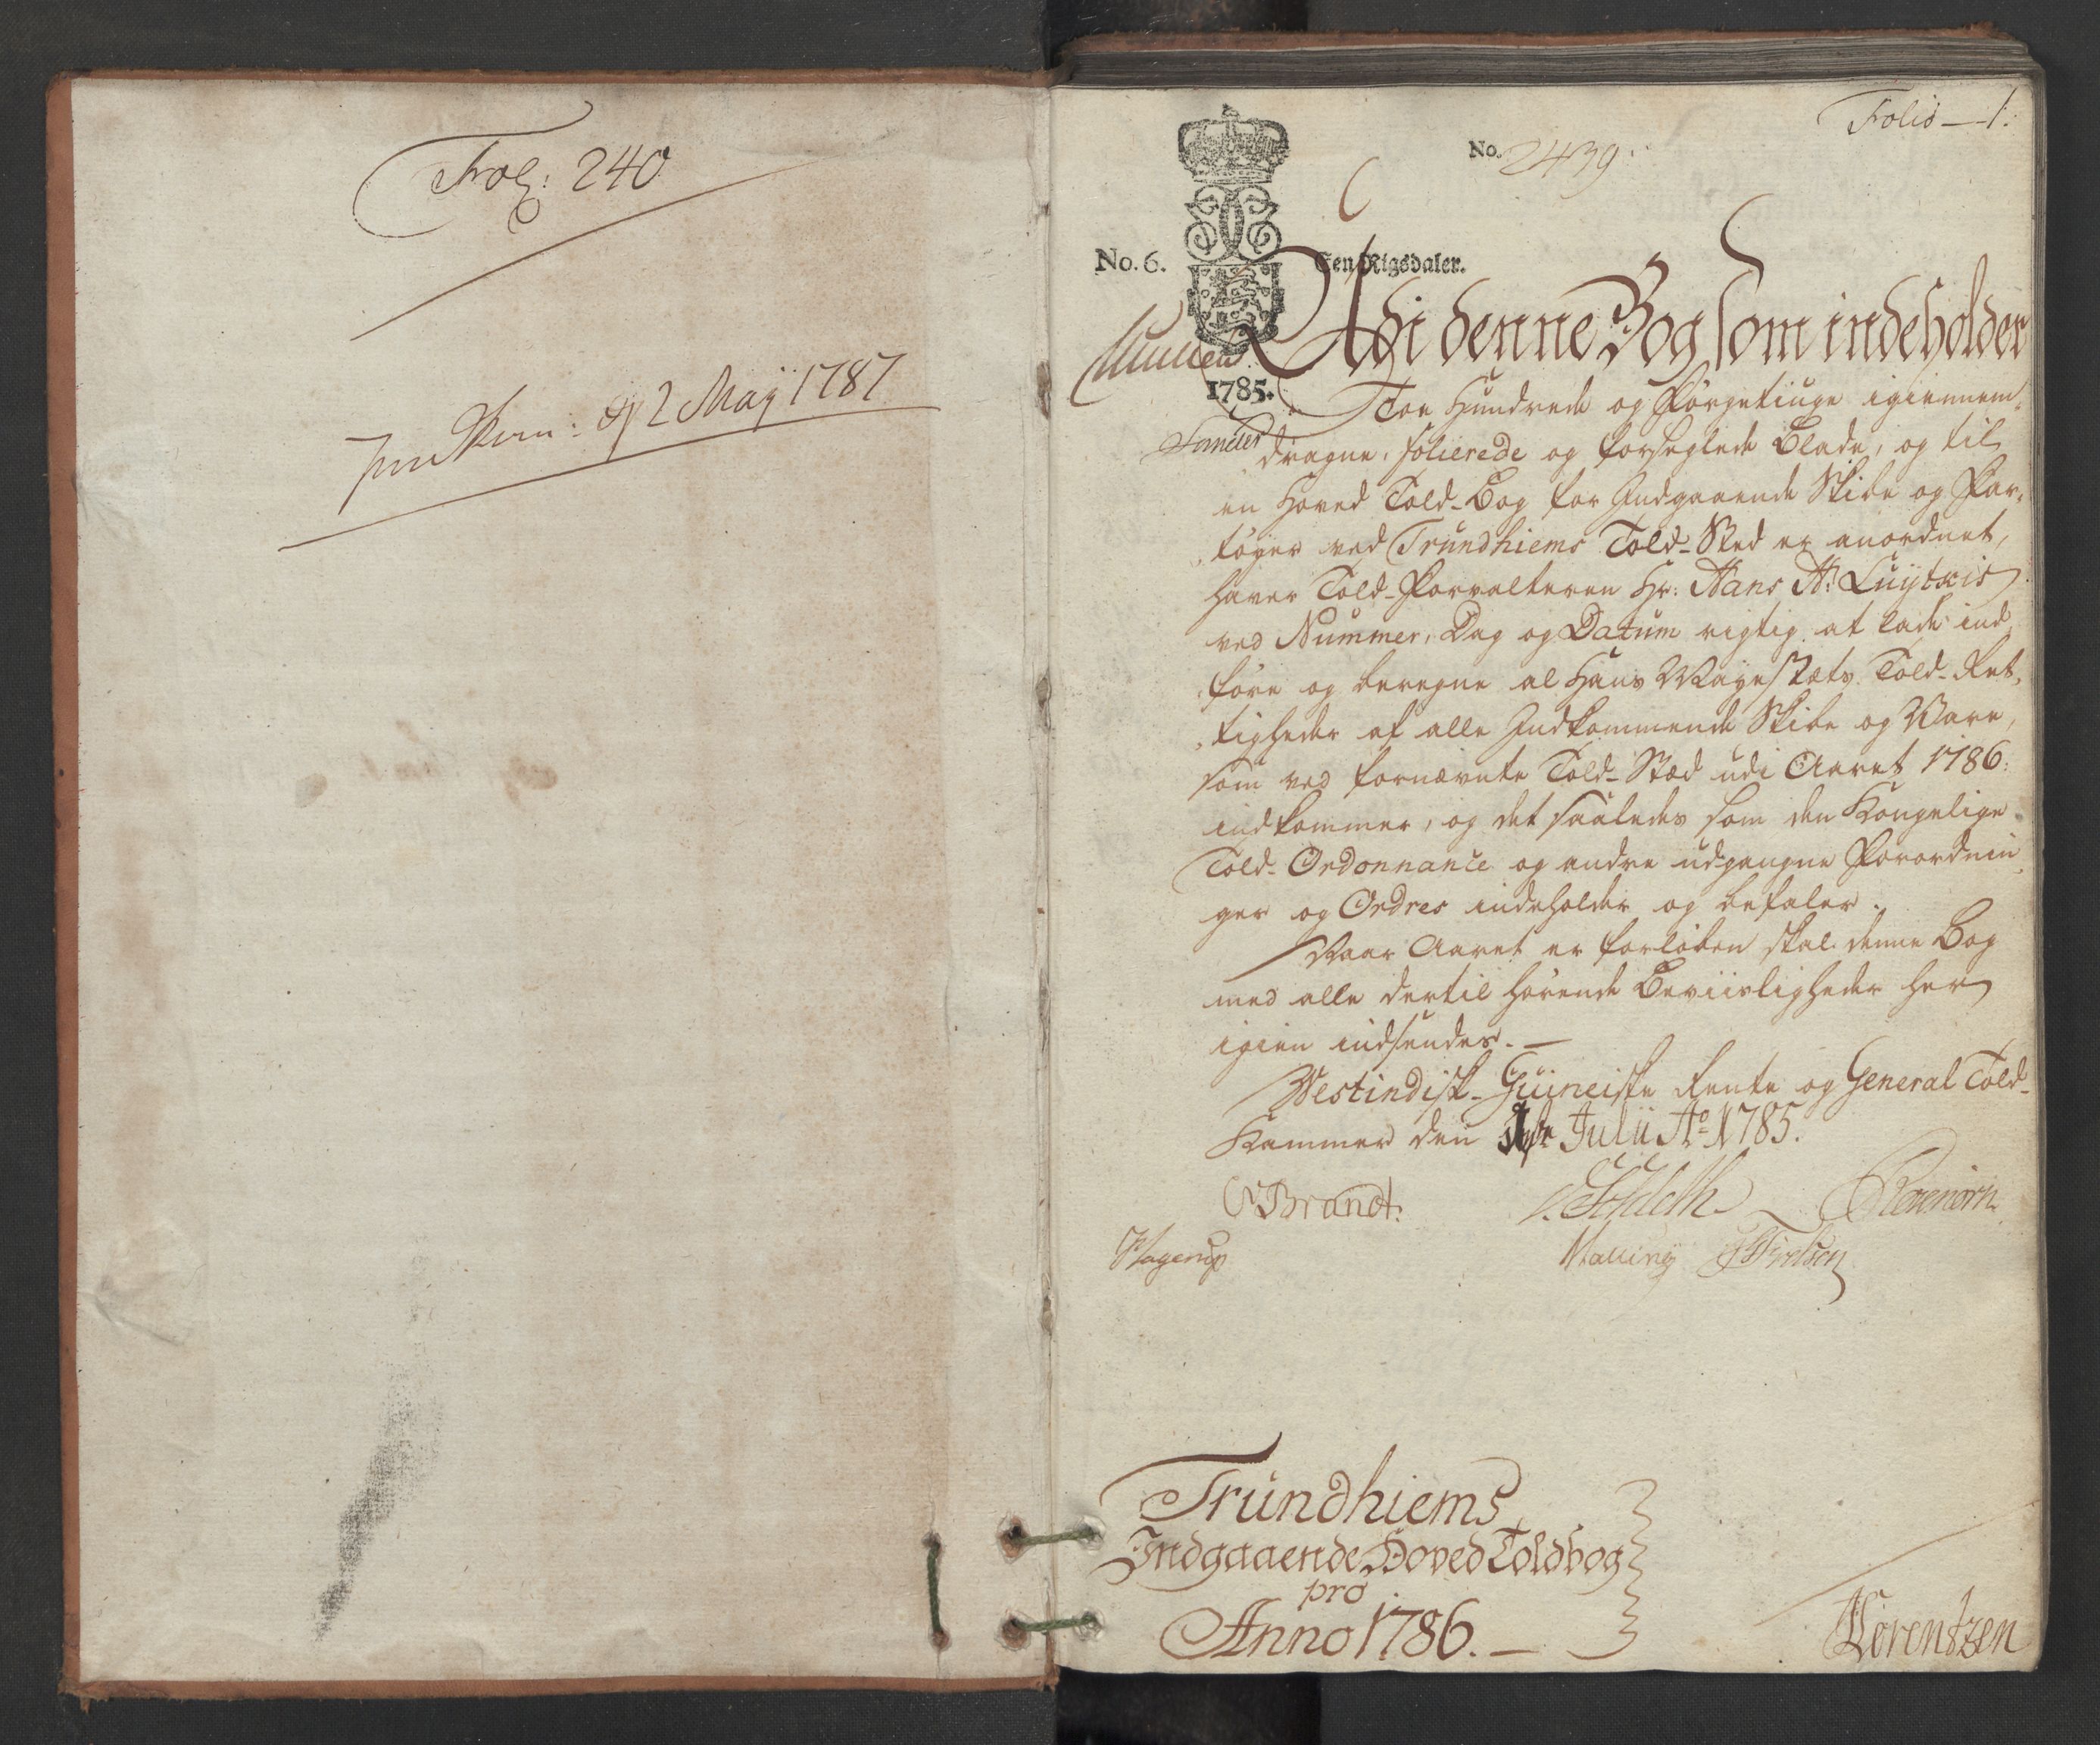 Fol: 240
2 Maÿ 1787
Folio — 1.
No. 2439.
No. 6.
Een Rigsdaler.
1785.
Udi denne Bog som indeholder
Toe Hundrede og Førgetiuge igiennem,
dragne, folierede og forseglede Blade, og til
en Hoved Told-Bog for Indgaaende Skibe og Far,
tøyer ved Trundhiems Told-Sted er anordnet,
haver Told-Forvalteren Hr: Hans H: Luÿtkis
ved Nummer, Dag og Datum rigtig at lade ind,
føre og beregne al Hans Mayestæts Told-Ret,
tigheder af alle Indkommende Skibe og Vare,
som ved fornævnte Told-Stæd udi Aaret 1786.
indkommer, og det saaledes som den Kongelige
Told-Ordonnance og andre udgangne Forordnin,
ger og Ordres indeholder og befaler.
Naar Aaret er forløben skal denne Bog
med alle dertil hørende Beviisligheder her
igien indsendes. —
Westindisk-Guineiske Rente og General Told-
Kammer den Julii Ao 1785.
Brandt.
Hagerup
Malling
Trundhiems
Indgaaende Hoved Toldbog
pro
Anno 1786. —
Lorentzen